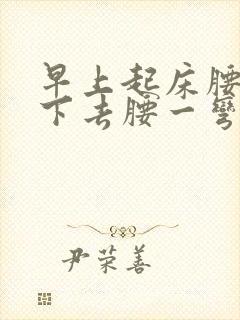 早上起床腰
下去腰一弯
尹荣善